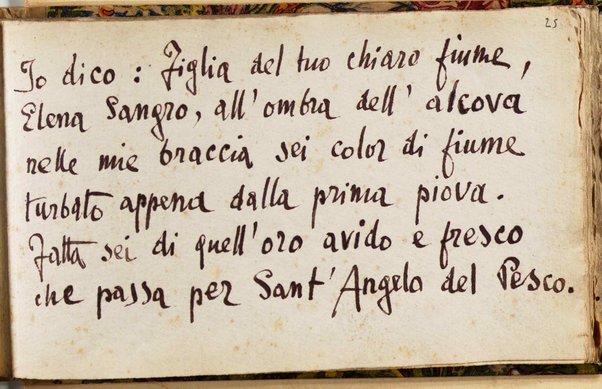 25
Io dico : Figlia del tuo chiaro fiume,
Elena Sangro, all'ombra dell' alcova
nelle mie braccia sei color di fiume
turbato appena dalla prima piova.
Fatta sei di quell'oro avido e fresco
che passa per Sant'Angelo del Pesco.